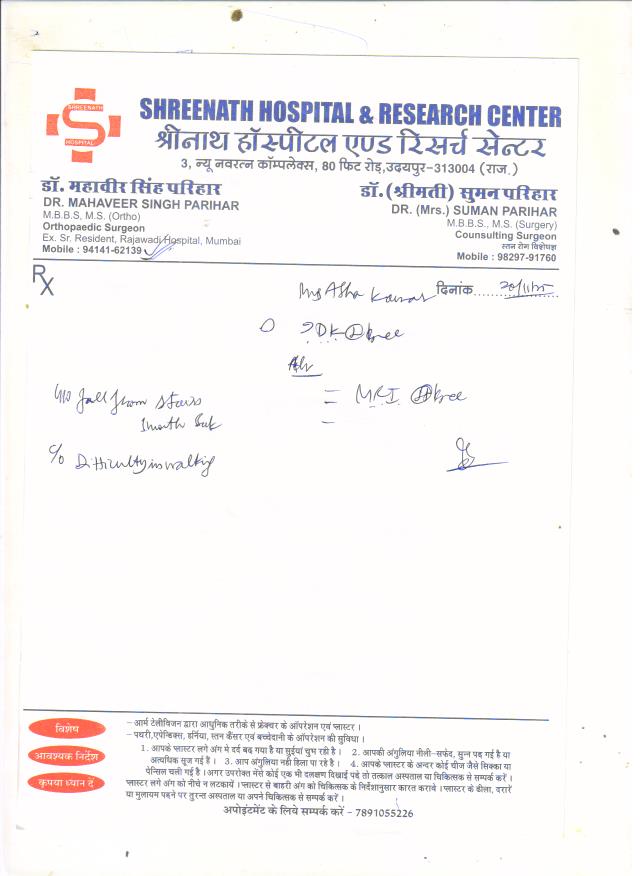 SHREENATH
HOSPITAL
SHREENATH HOSPITAL & RESEARCH CENTER
श्रीनाथ हॉस्पीटल एण्ड रिसर्च सेन्टर
3, न्यू नवरत्न कॉम्पलेक्स, 80 फिट रोड़,उदयपुर-313004 (राज.)
डॉ. महावीर सिंह परिहार
DR. MAHAVEER SINGH PARIHAR
M.B.B.S, M.S. (Ortho)
Orthopaedic Surgeon
Ex. Sr. Resident, Rajawadi Hospital, Mumbai
Mobile : 94141-62139
डॉ.(श्रीमती) सुमन परिहार
DR. (Mrs.) SUMAN PARIHAR
M.B.B.S., M.S. (Surgery)
Counsulting Surgeon
स्तन रोग विशेषज्ञ
Mobile : 98297-91760
Rx
Mrs Asha Kanwar दिनांक
knee
Adv
H/o fall from stairs = MRI knee
1 month back
c/o Difficulty in walking
विशेष
आवश्यक निर्देश
कृपया ध्यान दें
– आर्म टेलीविजन द्वारा आधुनिक तरीके से फ्रेक्चर के ऑपरेशन एवं प्लास्टर ।
– पथरी,एपेन्डिक्स, हर्निया, स्तन कैंसर एवं बच्चेदानी के ऑपरेशन की सुविधा ।
1. आपके प्लास्टर लगे अंग मे दर्द बढ़ गया है या सुईयां चुभ रही है । 2. आपकी अंगुलिया नीली-सफेद, सुन्न पड़ गई है या
अत्यधिक सूज गई हैं । 3. आप अंगुलिया नही हिला पा रहे है । 4. आपके प्लास्टर के अन्दर कोई चीज जैसे सिक्का या
पेन्सिल चली गई है । अगर उपरोक्त मेंसे कोई एक भी दलक्षण दिखाई पडे तो तत्काल अस्पताल या चिकित्सक से सम्पर्क करें ।
प्लास्टर लगे अंग को नीचे न लटकायें । प्लास्टर से बाहरी अंग को चिकित्सक के निर्देशानुसार करात करावे । प्लास्टर के ढीला, दरारें
या मुलायम पड़ने पर तुरन्त अस्पताल या अपने चिकित्सक से सम्पर्क करें ।
अपोइंटमेंट के लिये सम्पर्क करें - 7891055226